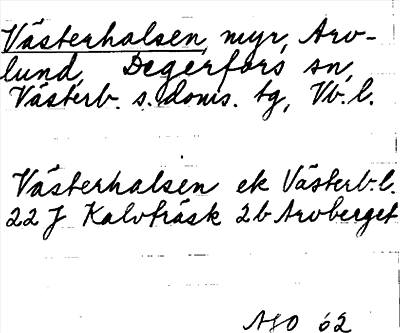 Västerhalsen, myr, Arv-
lund, Degerfors sn,
Västerb. s. doms. tg, Vb. l.
Västerhalsen ek Västerb. l.
22 J Kalvträsk 2b Arvberget
ASO 62